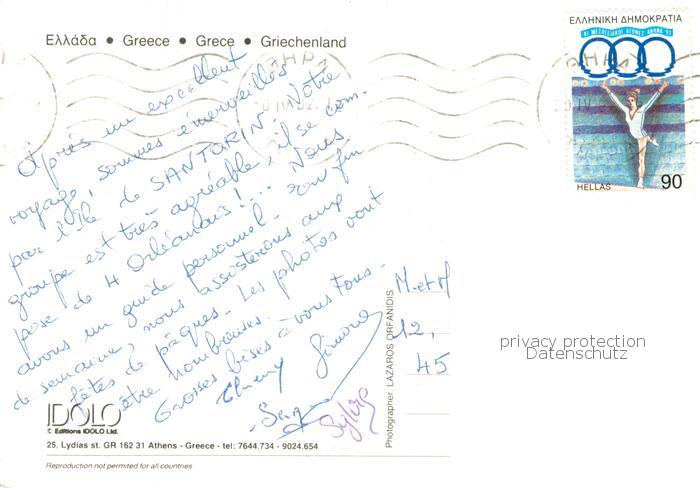 Ελλάδα • Greece • Grece • Griechenland
ΕΛΛΗΝΙΚΗ ΔΗΜΟΚΡΑΤΙΑ
XI ΜΕΣΟΓΕΙΑΚΟΙ ΑΓΩΝΕΣ ΑΘΗΝΑ '91
HELLAS 90
Après un excellent
voyage, sommes émerveillés
par l'île de SANTORIN. Notre
groupe est très agréable, il se com-
pose de 4 Orléanais !... Nous
avons un guide personnel. En fin
de semaine, nous assisterons aux
fêtes de pâques. Les photos vont
être nombreuses.
Grosses bises à vous tous.
Thierry Simone
Serge
Sylvie
M. et M
12,
45
Photographer LAZAROS ORFANIDIS
privacy protection
Datenschutz
IDOLO
© Editions IDOLO Ltd.
25, Lydias st. GR 162 31 Athens - Greece - tel: 7644.734 - 9024.654
Reproduction not permited for all countries